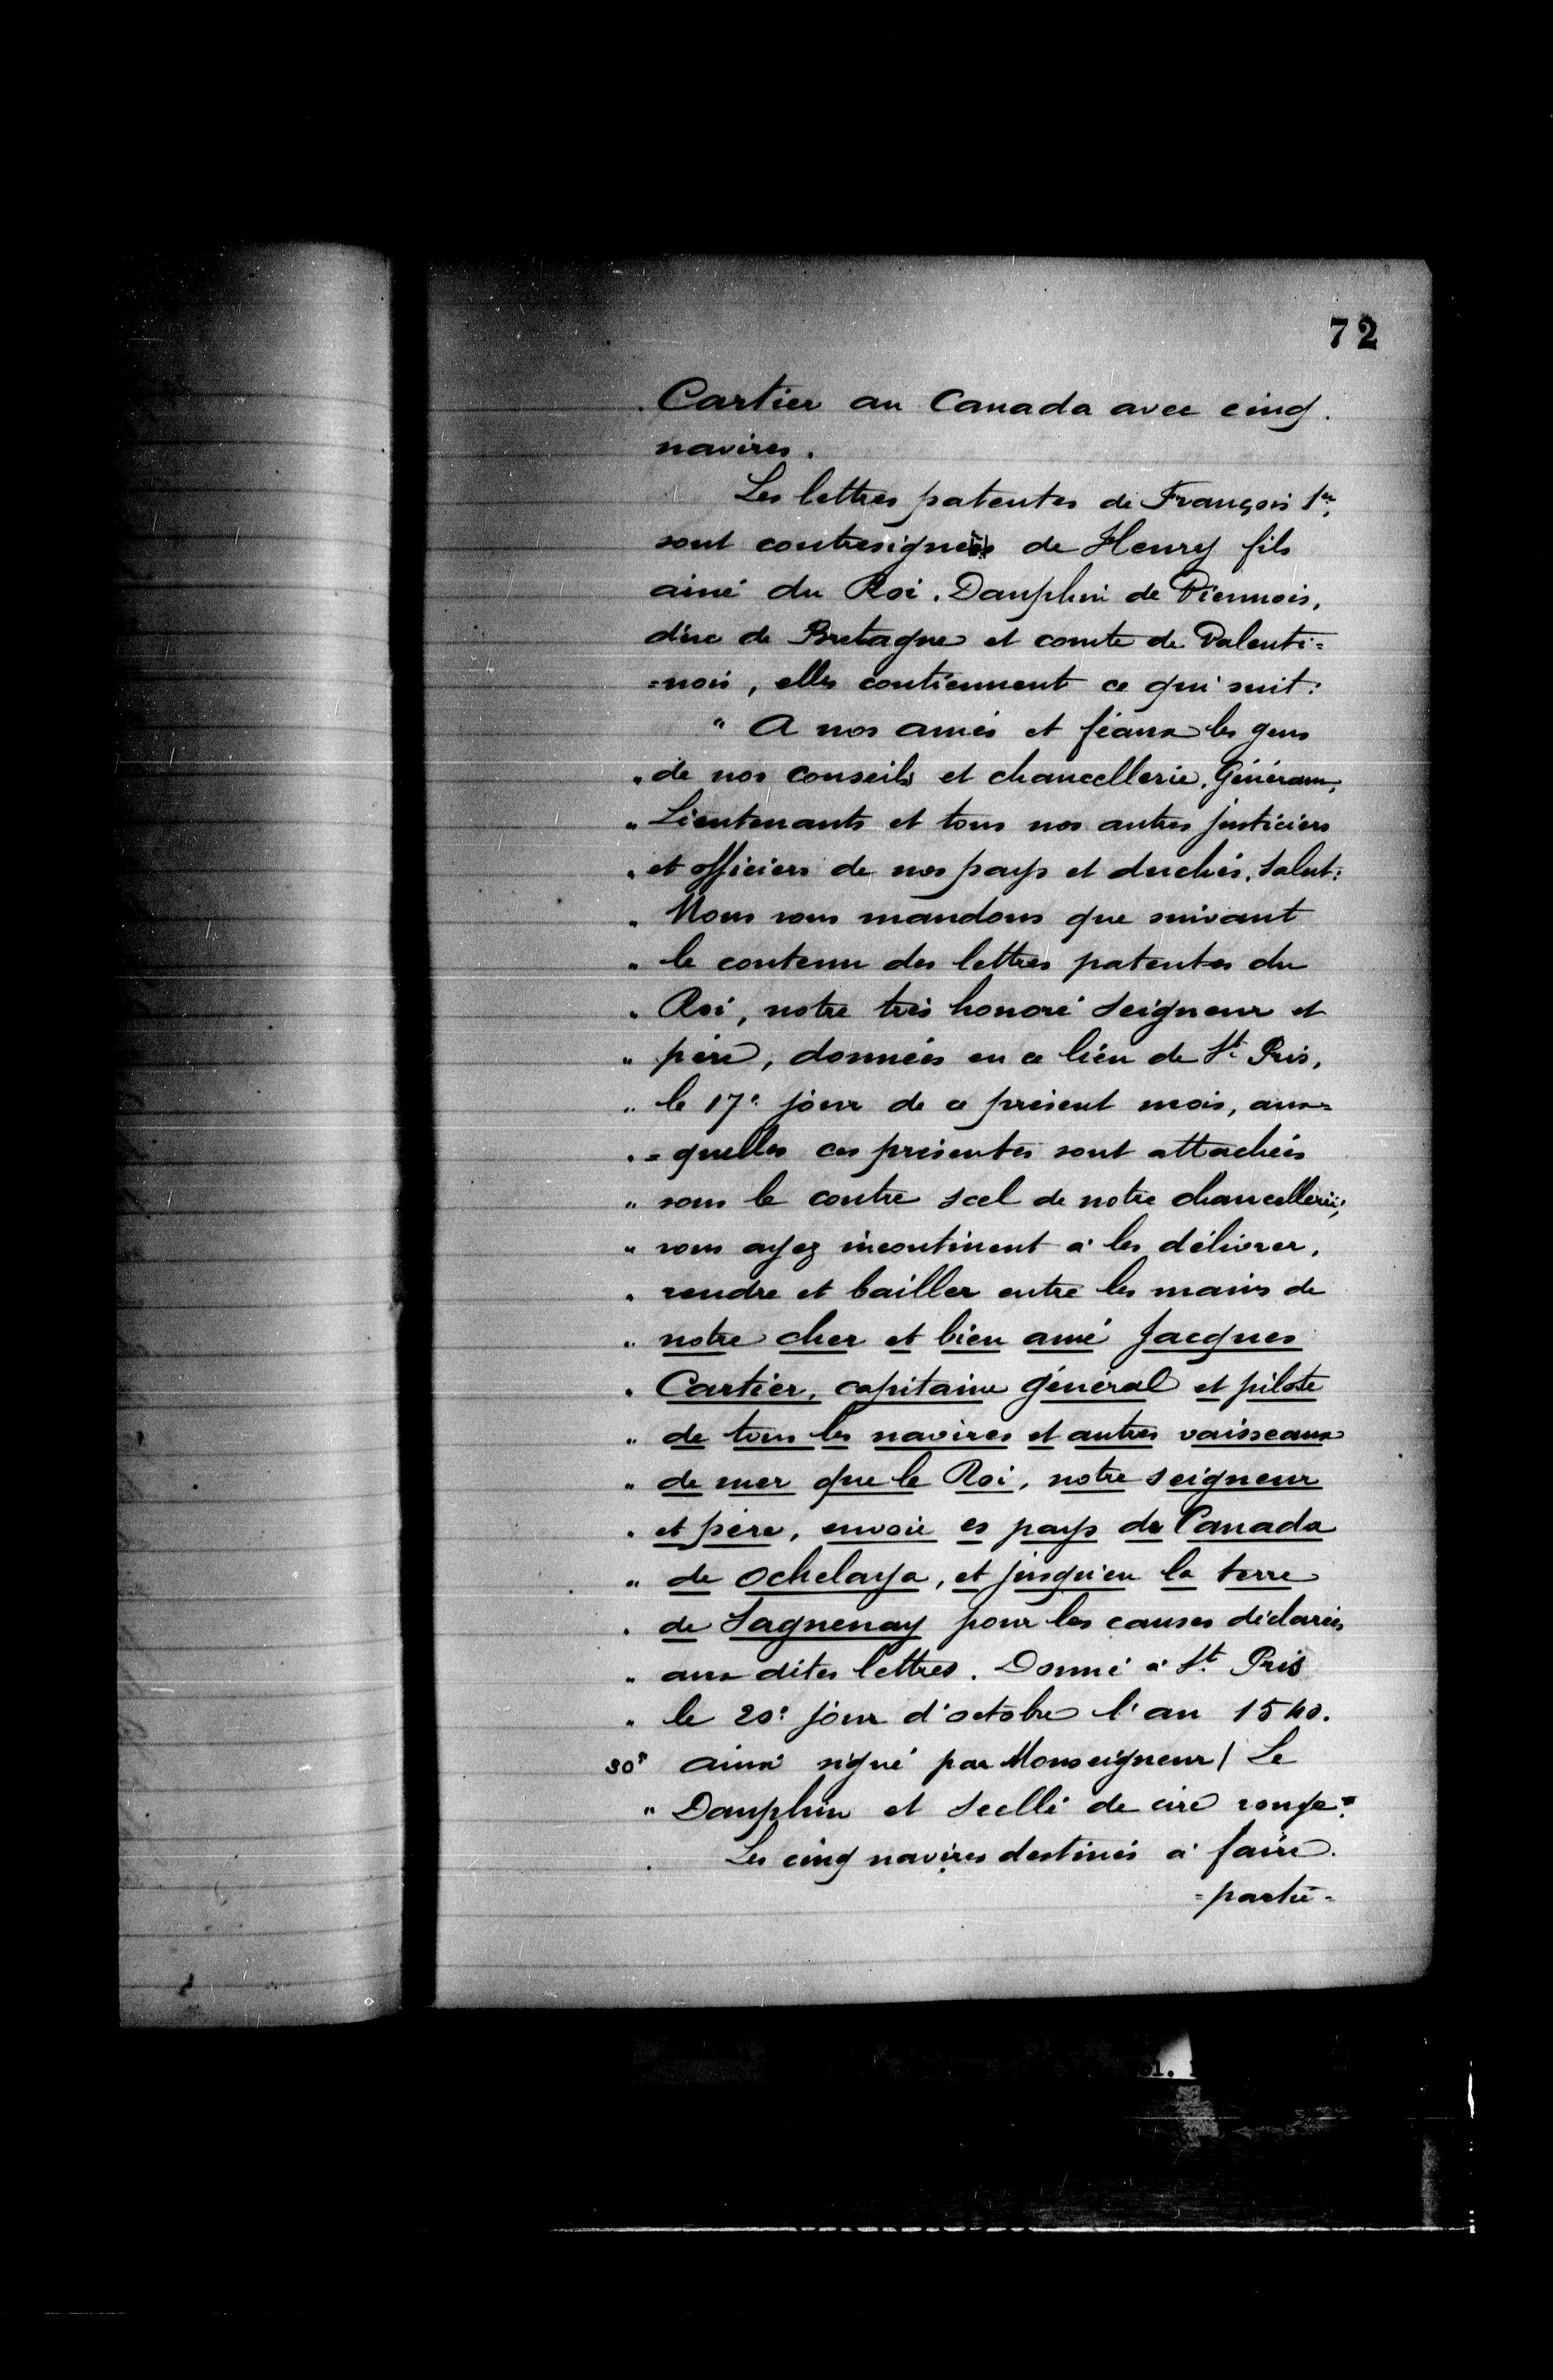 72
Cartier au Canada avec cinq
navires.
Les lettres patentes de François 1er,
sont contresignées de Henry fils
ainé du Roi. Dauphin de Viennois,
duc de Bretagne et comte de Valenti=
=nois, elles contiennent ce qui suit:
" A nos amés et féaux les gens
" de nos conseils et chancellerie. Généraux,
" Lieutenants et tous nos autres justiciers
" et officiers de nos pays et duchés. Salut:
" Nous vous mandons que suivant
" le contenu des lettres patentes du
" Roi, notre très honoré Seigneur et
" père, données en ce lieu de St. Pris,
" le 17e jour de ce présent mois, aux=
" =quelles ces présentes sont attachées
" sous le contre scel de notre chancellerie,
" vous ayez incontinent à les délivrer,
" rendre et bailler entre les mains de
" notre cher et bien amé Jacques
" Cartier, capitaine général et pilote
" de tous les navires et autres vaisseaux
" de mer que le Roi, notre seigneur
" et père, envoie es pays de Canada
" de Ochelaya, et jusqu'en la terre
" de Sagnenay pour les causes déclarées
" aux dites lettres. Donné à St. Pris
" le 20e jour d'octobre l'an 1540.
" ainsi signé par Monseigneur / Le
" Dauphin et Scellé de cire rouge"
Les cinq navires destinés à faire
=partie=